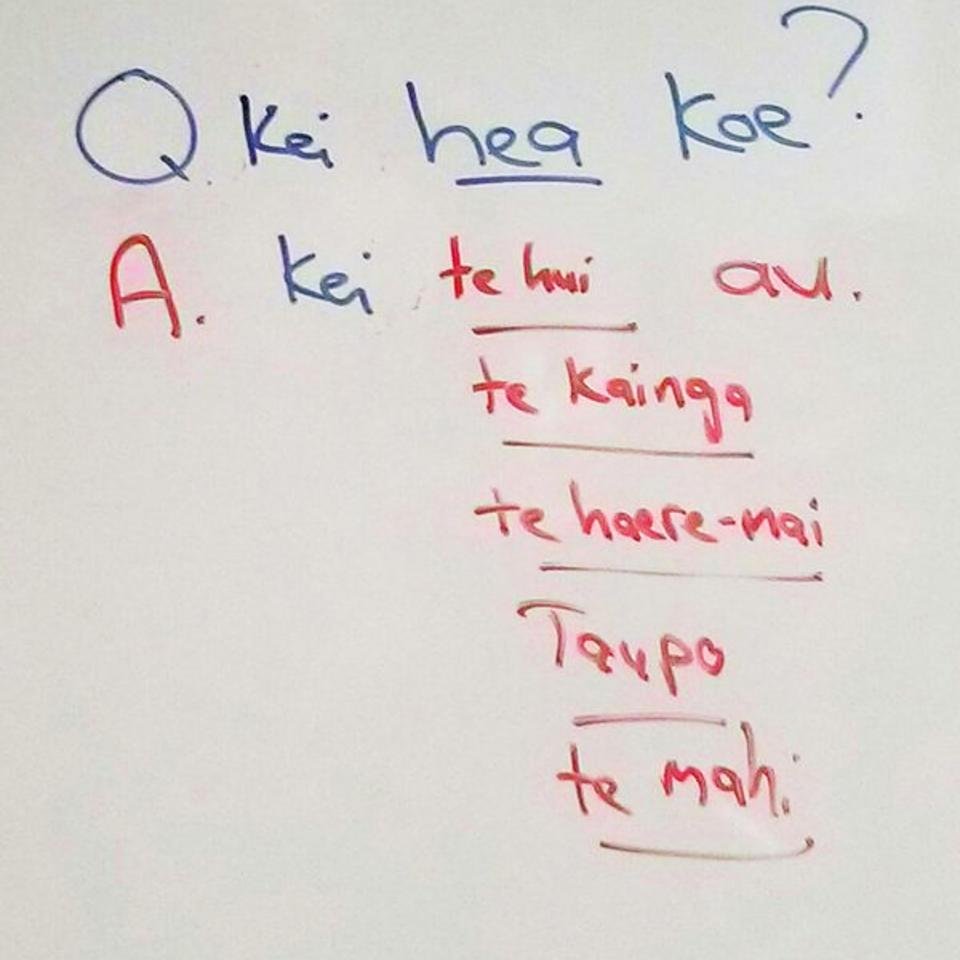 Q. Kei hea koe?
A. Kei te hui au.
te kainga
te haere-mai
Taupo
te mahi